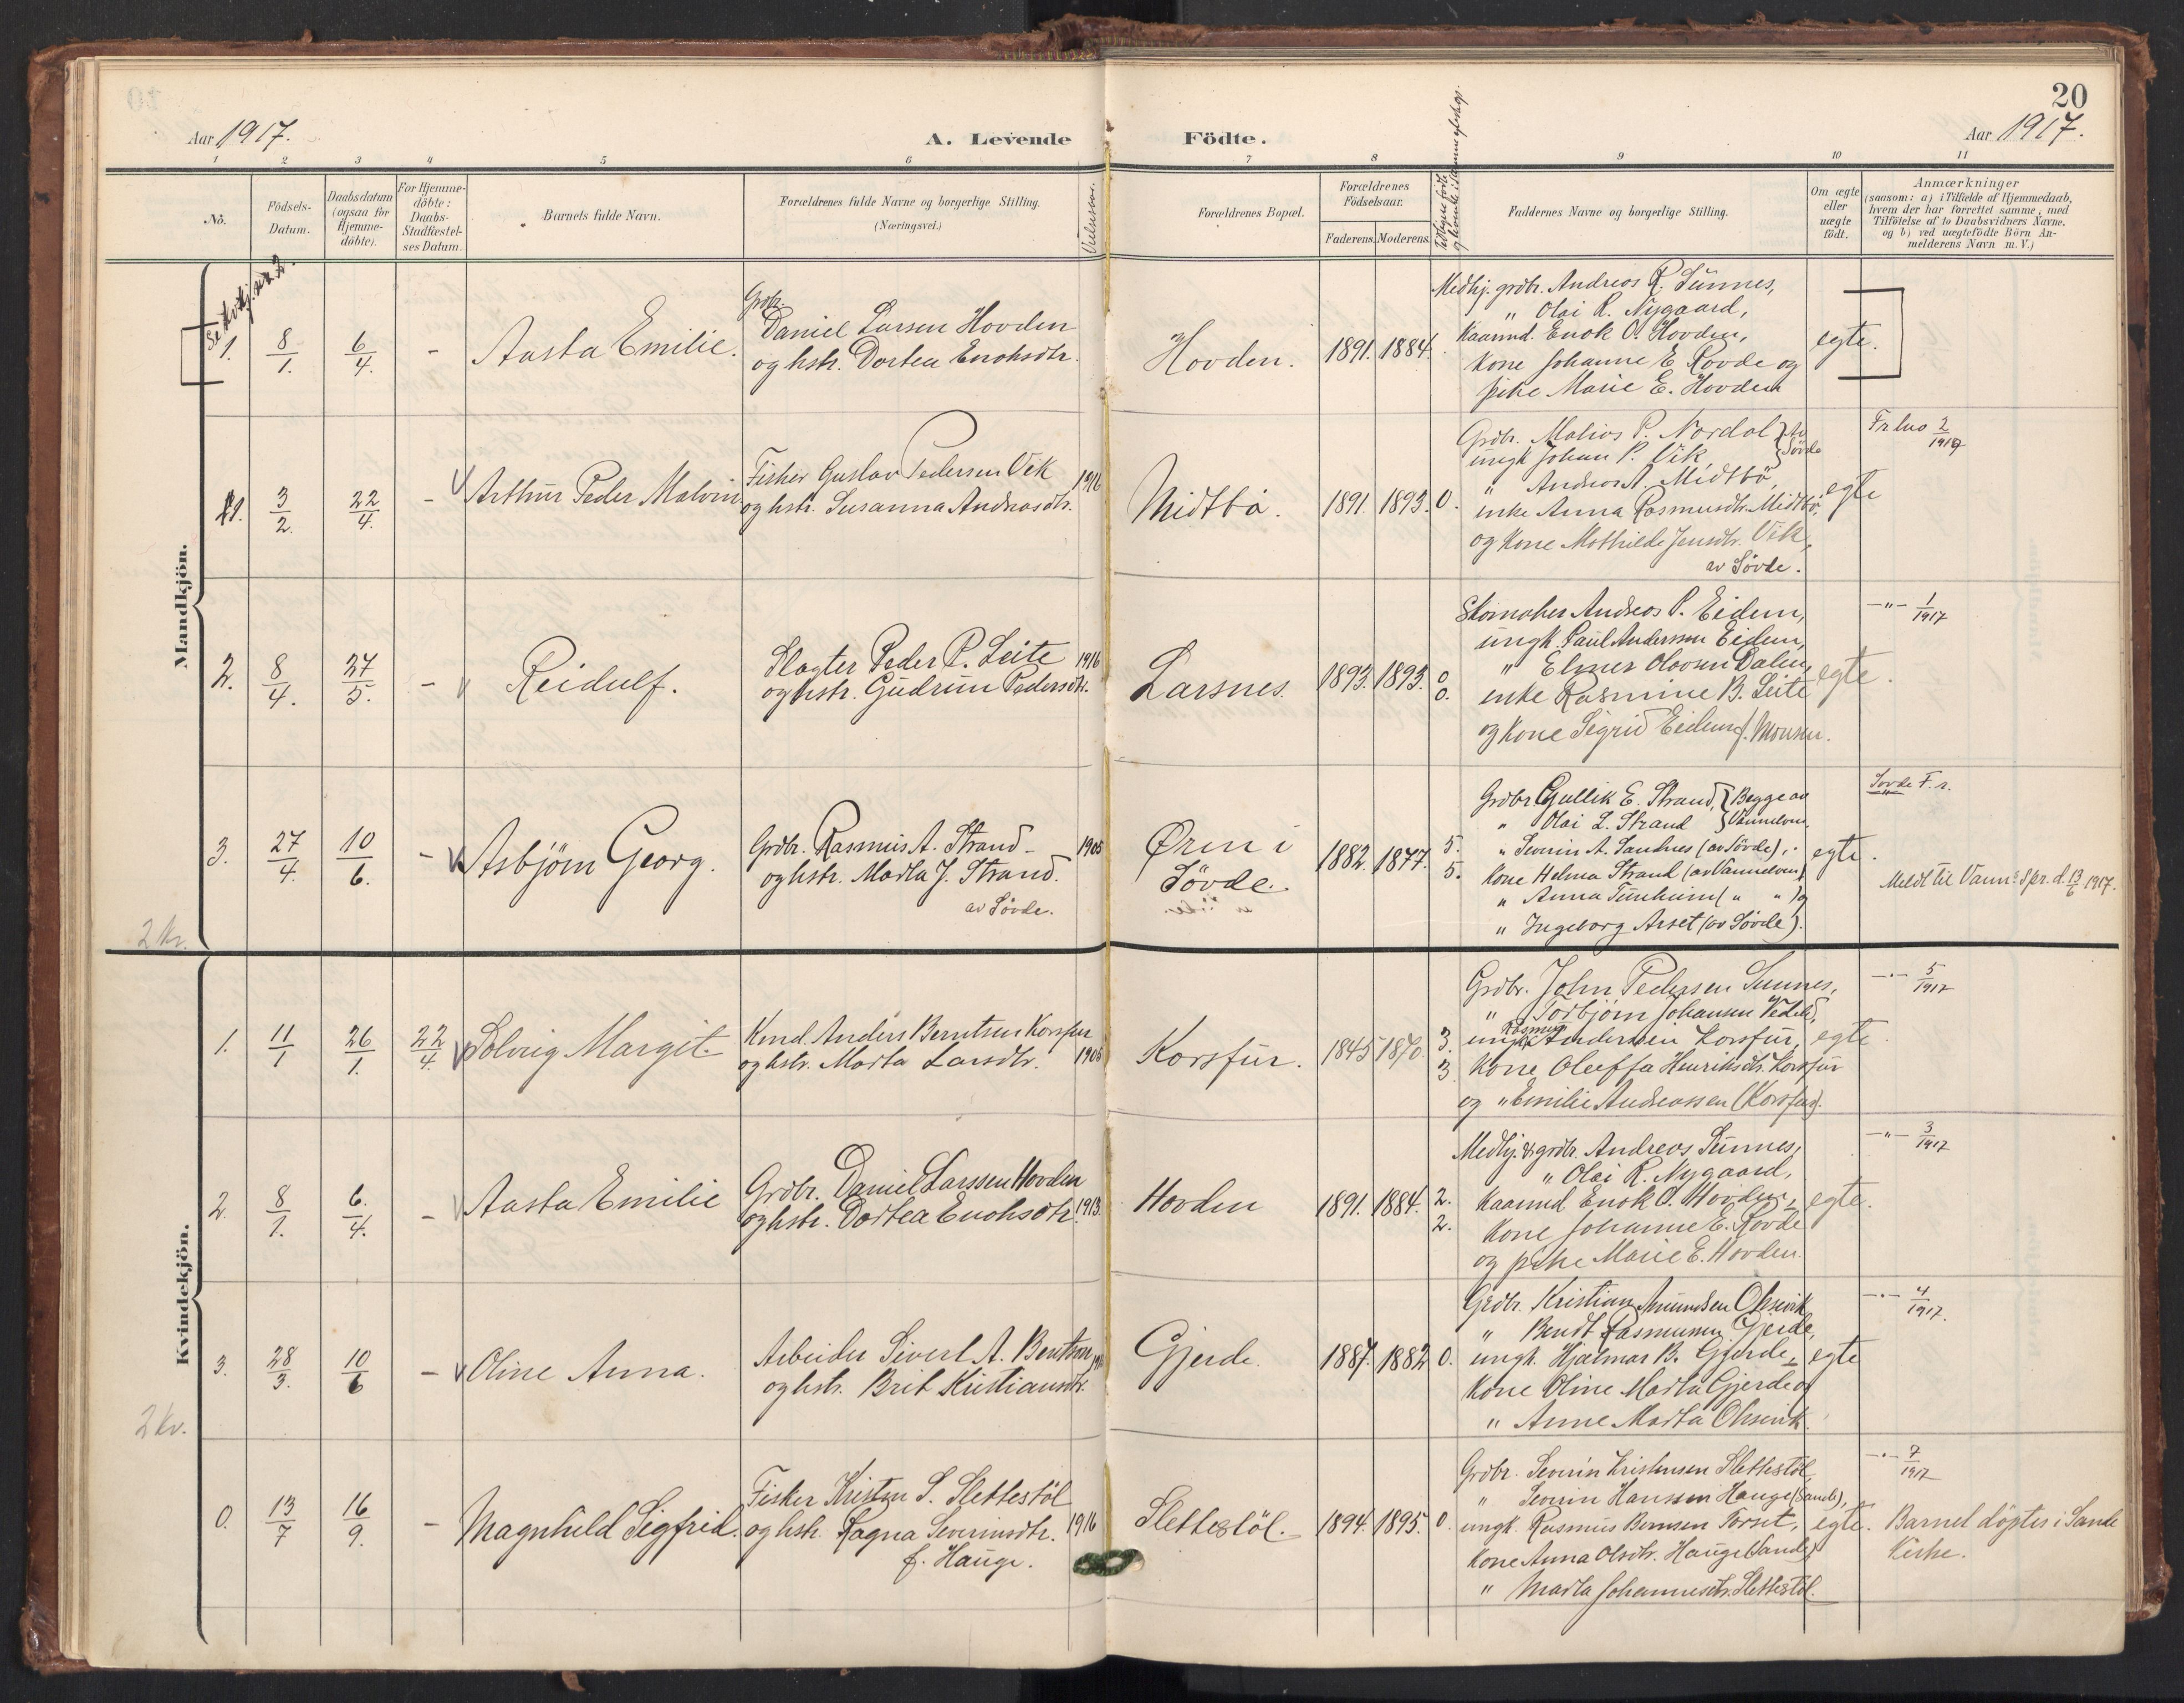 20
Aar 1917.
A. Levende Födte.
Aar 1917.
1 2 3 4 5 6 7 8 9 10 11
No.
Födsels-Datum.
Daabsdatum (ogsaa for Hjemme-döbte).
For Hjemme-döbte: Daabs-Stadfæstel-ses Datum.
Barnets fulde Navn.
Forældrenes fulde Navne og borgerlige Stilling.
(Næringsvei.)
Vielsesaar.
Forældrenes Bopæl.
Forældrenes Födselsaar.
Faderens. Moderens.
Faddernes Navne og borgerlige Stilling.
Om ægte eller uægte födt.
Anmærkninger
(saasom: a) i Tilfælde af Hjemmedaab,
hvem der har forrettet samme, med
Tilföielse af to Daabsvidners Navne,
og b) ved uægtefödte Börn An-
melderens Navn m. V.)
Mandkjön.
1. 8/1. 6/4. - Aasta Emilie.
Grdbr.
Daniel Larsen Hovden
og hstr. Dortea Enoksdtr.
Hovden. 1891. 1884.
Medhj. grdbr. Andreas R. Sunnes,
" Olai R. Nygaard,
Kaarmd. Enok O. Hovden,
Kone Johanne E. Rovde og
pike Marie E. Hovden
egte.
1. 3/2. 22/4. - Arthur Peder Malvin
Fisker Gustav Pedersen Vik 1916
og hstr. Susanna Andreasdtr.
Midtbö. 1891. 1893. 0.
Grdbr. Matias P. Nordal } av
ungk. Johan P. Vik, } Sövde
" Andreas A. Midtbö,
enke Anna Rasmusdtr. Midtbö,
og Kone Mathilde Jensdtr. Vik,
av Sövde.
egte
2. 8/4. 27/5. - Reidulf.
Slagter Peder P. Leite 1916
og hstr. Gudrun Pedersdtr.
Larsnes. 1893. 1893. 0 0.
Skomaker Andreas P. Eidem,
ungk. Paul Andersen Eidem,
" Elmer Olavsen Dalen,
enke Rasmine B. Leite
og Kone Sigrid Eidem f. Monsen.
egte.
-"- 1/1917
3. 27/4. 10/6. - Asbjörn Georg.
Grdbr. Rasmus A. Strand - 1905
og hstr. Marta J. Strand.
av Sövde.
Øren i
Sövde.
1882. 1877. 5. 5.
Grdbr. Gullik E. Strand, } Begge av
" Olai L. Strand } Vannelven.
" Severin A. Sandnes (av Sövde),
Kone Helma Strand (av Vannelven)
" Anna Tunheim ( " " ) og
" Ingeborg Arset (av Sövde).
egte.
Sövde F. r.
Meldt til Vann. Spr. d. 13/6 1917.
2 kr.
Kvindekjön.
1. 11/1 26/1. 22/4. Solveig Margit.
Kmd. Anders Berntsen Korsfur
og hstr. Marta Larsdtr. 1905
Korsfur. 1845 1870. 3. 3
Grdbr. John Pedersen Sunnes,
" Torbjörn Johansen Vedeld,
Rasmus
ungk. Andersen Korsfur,
Kone Oleffa Henriksdtr. Korsfur
og " Emilie Andreassen (Korsfur).
egte.
-"- 5/1917
2. 8/1. 6./4. - Aasta Emilie
Grdbr. Daniel Larssen Hovden
og hstr. Dortea Enoksdtr. 1913.
Hovden 1891. 1884. 2. 2.
Medhj. & grdbr. Andreas Sunnes,
" Olai R. Nygaard,
Kaarmd Enok O. Hovden,
Kone Johanne E. Rovde
og pike Marie E. Hovden.
egte.
-"- 3/1917
3. 28/3. 10/6 - Oline Anna.
Arbeider Sivert A. Bentsen
og hstr. Brit Kristiansdtr.
Gjerde. 1887. 1882 0.
Grdbr. Kristian Amundsen Olsvik
" Bendt Rasmussen Gjerde,
ungk. Hjalmar B. Gjerde,
Kone Oline Marta Gjerde og
" Anne Marta Olsvik.
egte
-"- 4/1917.
2 kr.
0. 13/7 16/9. - Magnhild Sigfrid.
Fisker Kristen S. Slettestöl
og hstr. Ragna Severinsdtr. 1916
f. Hauge.
Slettestöl. 1894. 1895. 0
Grdbr. Severin Kristensen Slettestöl,
" Severin Hanssen Hauge (Sande),
ungk. Rasmus Berntsen Torset,
Kone Anna Olsdtr. Hauge (Sande)
" Marta Johannesdtr. Slettestöl.
egte.
-"- 7/1917
Barnet döptes i Sande
Kirke.